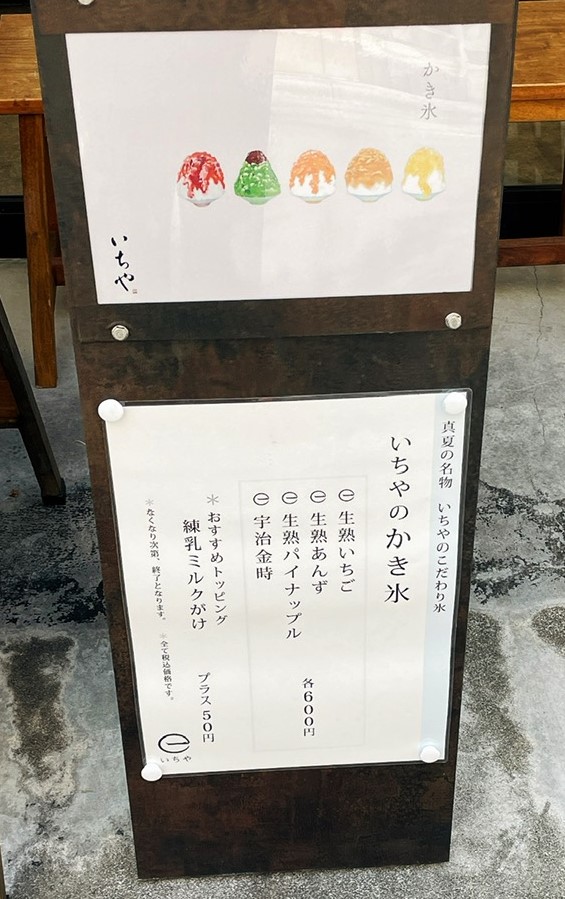 かき氷
いちや
真夏の名物 いちやのこだわり氷
いちやのかき氷
生熟いちご
生熟あんず
生熟パイナップル
宇治金時
各600円
＊おすすめトッピング
練乳ミルクがけ
プラス50円
＊なくなり次第、終了となります。 ＊全て税込価格です。
いちや